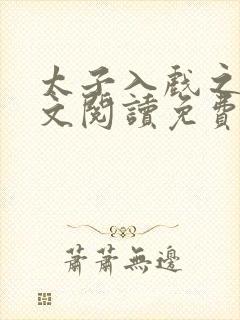 太子入戲之
文閱讀免費
蕭蕭無邊